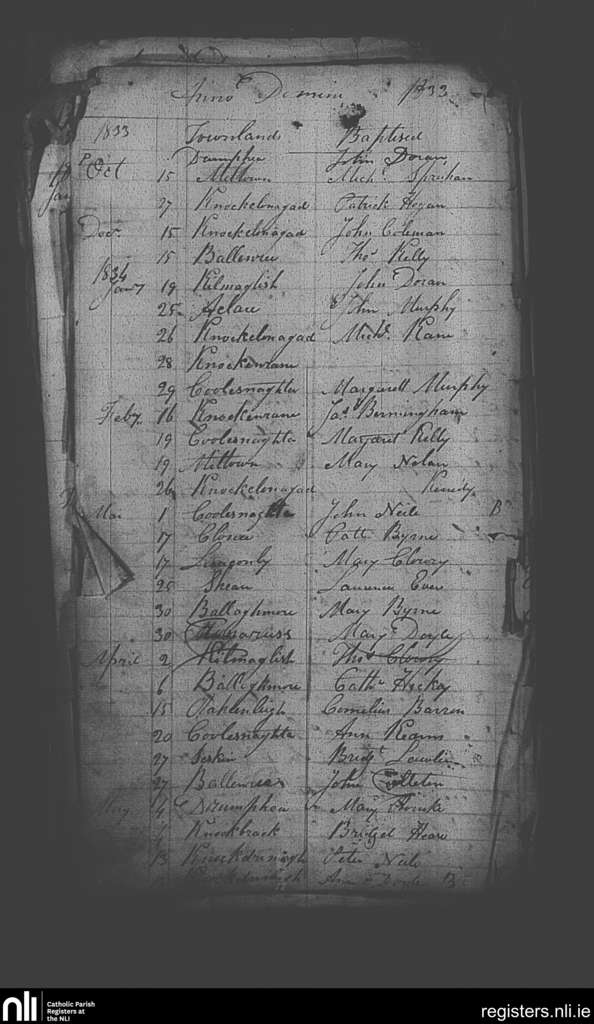 Anno Domini 1833
1833 Townland Baptised
Drumphea John Doran
Oct 15 Miltown Michl. Spruhan
27 Knockelonagad Patrick Hogan
Decr. 15 Knockelonagad John Coleman
15 Ballewreu Thos. Kelly
1834
Jany 19 Kilmaglish John Doran
25 Aclare John Murphy
26 Knockelonagad Michl. Kane
28 Knockenrane
29 Coolesnaghta Margarett Murphy
Feby. 16 Knockenrane Jas. Bermingham
19 Coolesnaghta Margaret Kelly
19 Miltown Mary Nolan
26 Knockelonagad Kenedy
Mar 1 Coolesnaghta John Neile B
17 Clowa Cath Byrne
17 Mary Clowry
25 Skean Laurence
30 Ballaghmore Mary Byrne
30 Mary Doyle
April 2 Kilmaglish Thos. Clowry
6 Ballaghmore Cathe Hickey
15 Rahlenleigh Cornelius Barron
20 Coolesnaghta Ann Kearns
27 Seskin Bridgt. Lawler
27 Ballewreu John
May 4 Drumphea Mary
Knockbrack Bridget Heare
13 Knockdrinagh Peter Neile
Ann
nli
Catholic Parish
Registers at
the NLI
registers.nli.ie